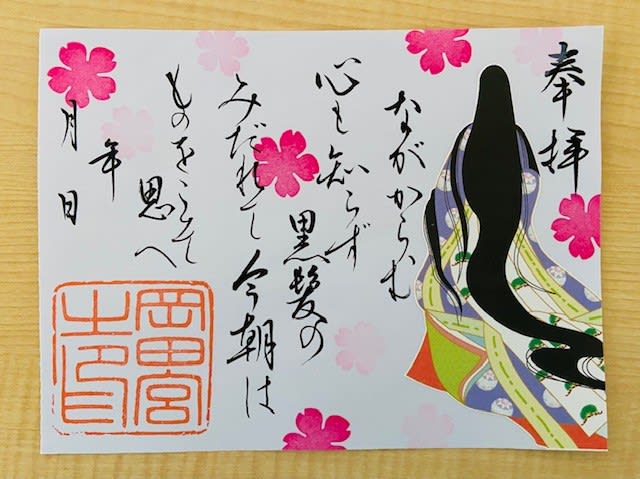 奉拝
ながからむ
心も知らず
黒髪の
みだれて
今朝は
ものをこそ
思へ
年
月 日
岡田宮
之印